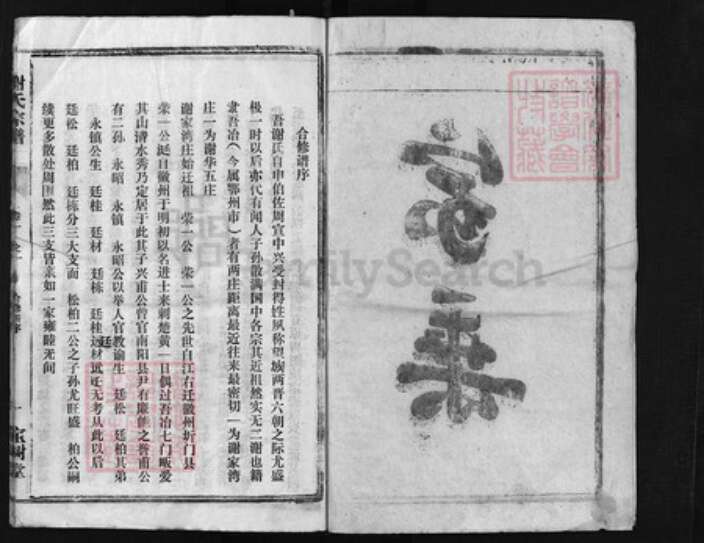 家乘
合修谱序
吾谢氏自申伯佐周宣中兴受封得姓夙称望族两晋六朝之际尤盛
极一时以后亦代有闻人子孙散满国中各宗其近祖然实无二谢也籍
隶吾冶(今属鄂州市)者有两庄距离最近往来最密切一为谢家湾
庄一为谢华五庄
谢家湾庄始迁祖 荣一公 荣一公之先世自江右迁徽州圻门县
荣一公挺自徽州于明初以名进士来刺楚黄一日偶过吾冶七门畈爱
其山清水秀乃定居于此其子兴甫公曾官南阳县尹有廉能之誉甫公
有二孙 永昭 永镇 永昭公以举人官教谕生 廷松 廷柏其弟
永镇公生 廷桂 廷材 廷栋 廷桂廷材远迁无考从此以后
廷松 廷柏 廷栋分三大支而 松柏二公之子孙尤旺盛 柏公嗣
续更多散处周围然此三支皆亲如一家雍睦无间
谢氏宗谱
合修谱序
一
宝树堂
FamilySearch